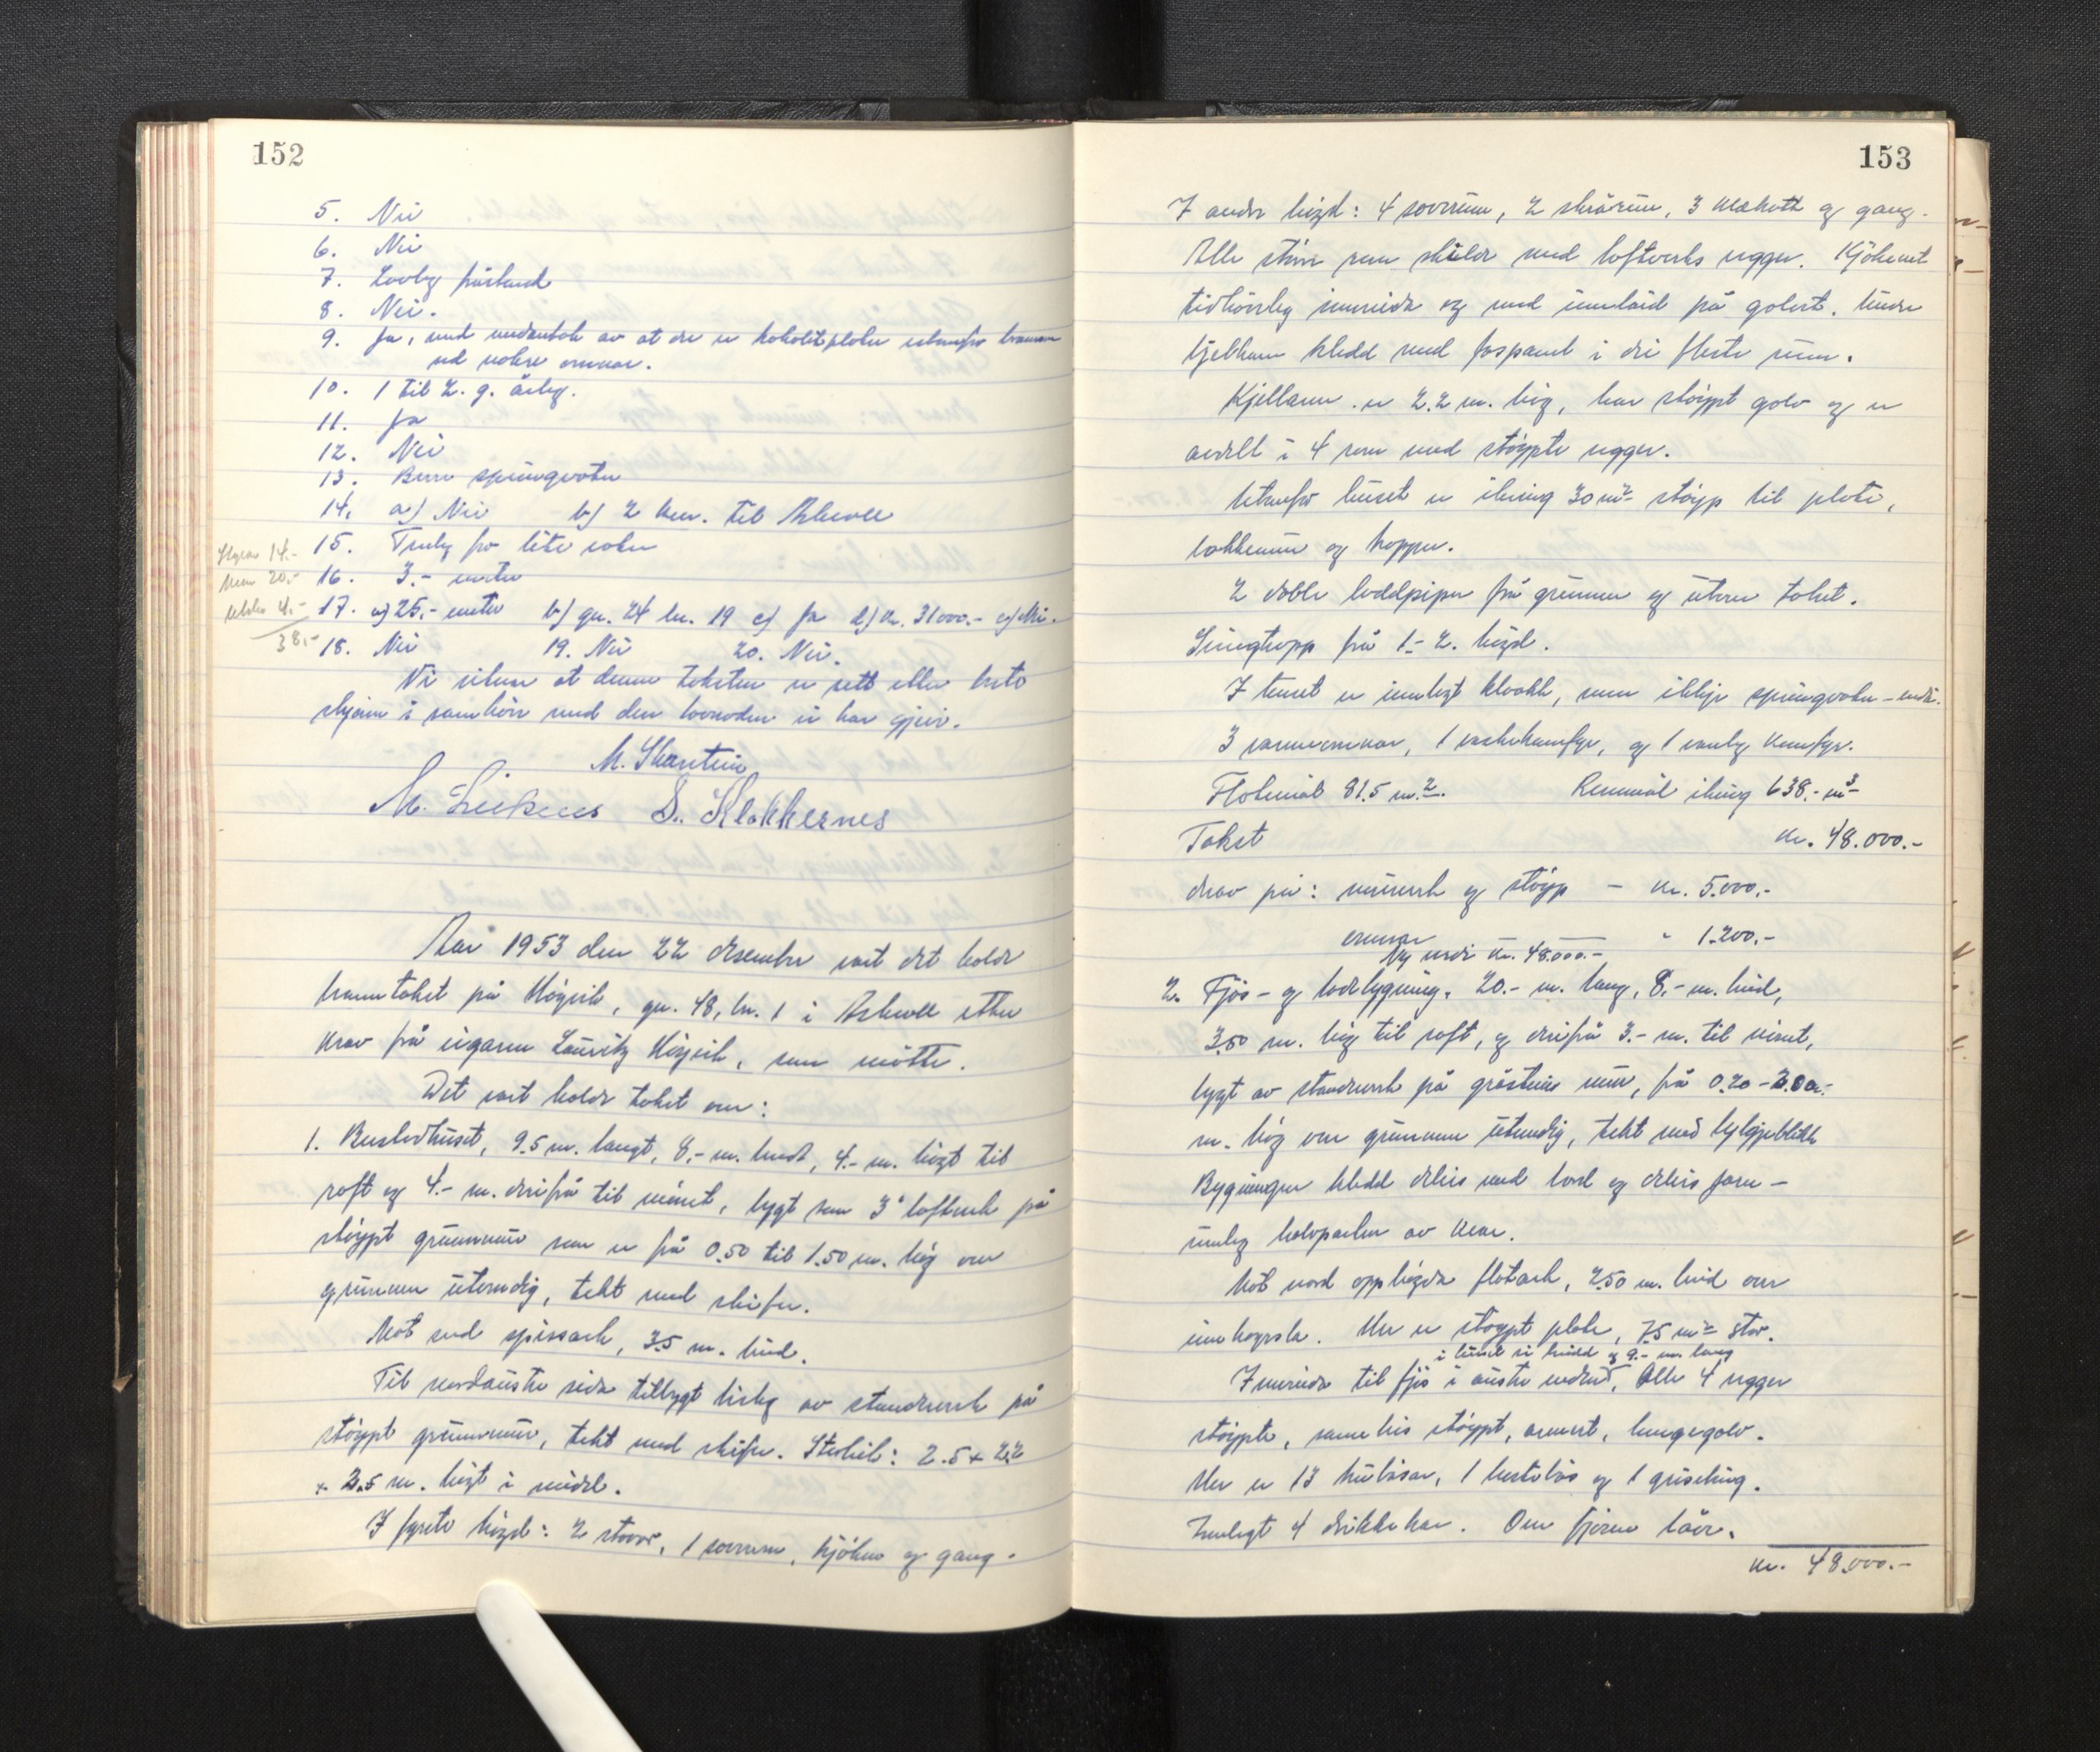 152
5. Nei
6. Nei
7. Lovleg forstand
8. Nei.
9. Ja, med undantak av at der er kokolitplater utanfor brannm
ved nokre omnar.
10. 1 til 2. g. årleg.
11. Ja
12. Nei
13. Berre springvatn
14. a) Nei b) 2 km. til Askvoll
15. Truleg for lite vatn
16. 3.- meter
17. a) 25.- meter b) gn. 24 bn. 19 c) Ja d) Kr. 31000.- e) Nei.
18. Nei 19. Nei 20. Nei.
14.-
20.-
4.-
38.-
Vi vitnar at denne taksten er sett etter beste
skjønn i samhøve med den lovnaden vi har gjeve.
M. Skarstein
S. Klakkernes
Aar 1953 den 22 desember vart det halde
branntakst på Høyvik, gn. 48, bn. 1 i Askvoll etter
krav frå eigaren Lauritz Høyvik, som møtte.
Det vart halde takst over:
1. Bustadhuset, 9.5 m. langt, 8.- m. bredt, 4.- m. høgt til
raft og 4.- m. derifrå til mønet, bygt som 3" loftverk på
støypt grunnmur som er frå 0.50 til 1.50 m. høg over
grunnen utvendig, tekt med skifer.
Mot sud spissark, 3.5 m. breid.
Til nordaustre sida tilbygt bislag av standverk på
støypt grunnmur, tekt med skifer. Storleik: 2.5 x 2.2
x 2.5 m. høgt i midel.
I fyrste høgd: 2 stover, 1 soverom, kjøken og gang.
153
I andre høgd: 4 soverum, 2 skrårum, 3 klækott og gang.
Alle større rom skilde med loftverks vegger. Kjøkenet
tidhøveleg innreida og med innlaid på golvet. Andre
kledd med faspanel i dei fleste rum.
Kjellaren er 2.2 m. høg, har støypt golv og er
avdelt i 4 rom med støypte vegger.
Utanfor huset er ikring 30 m² støyp til plate,
og tropper.
2 doble loddpiper frå grunnen og utover taket.
Svingtropp frå 1.- 2. høgd.
I huset er innlagt kloakk, men ikkje springvatn - endå.
3 varmeomnar, 1 vaskekomfyr, og 1 vanleg komfyr.
Flatemål 81.5 m.² Rummål ikring 638.- m³
Takst kr. 48.000.-
Herav på: murverk og støyp - kr. 5.000.-
omnar " 1.200.-
Ny verdi kr. 48.000.-
2. Fjøs- og lødebygning. 20.- m. lang, 8.- m. breid,
3.50 m. høg til raft, og derifrå 3.- m. til mønet,
bygt av standverk på gråsteins mur, frå 0.20 - 2.80
m. høg over grunnen utvendig, tekt med bylgjeblikk
Bygningen kledd delvis med bord og delvis
av
Mot nord opphøgda flatark, 2.50 m. breid over
innkøyrsla. Her er støypt plate, 7.5 m² stor.
i huset si breidd og 9.- m. lang
Innreida til fjøs i austre enden, Alle 4 vegger
støypte, støypt, armert, hengegolv.
Her er 13 kubåsar, 1 hestebås og 1 grisebing.
Innlagt 4 drikkekar. Over fjøren låve.
kr. 48.000.-